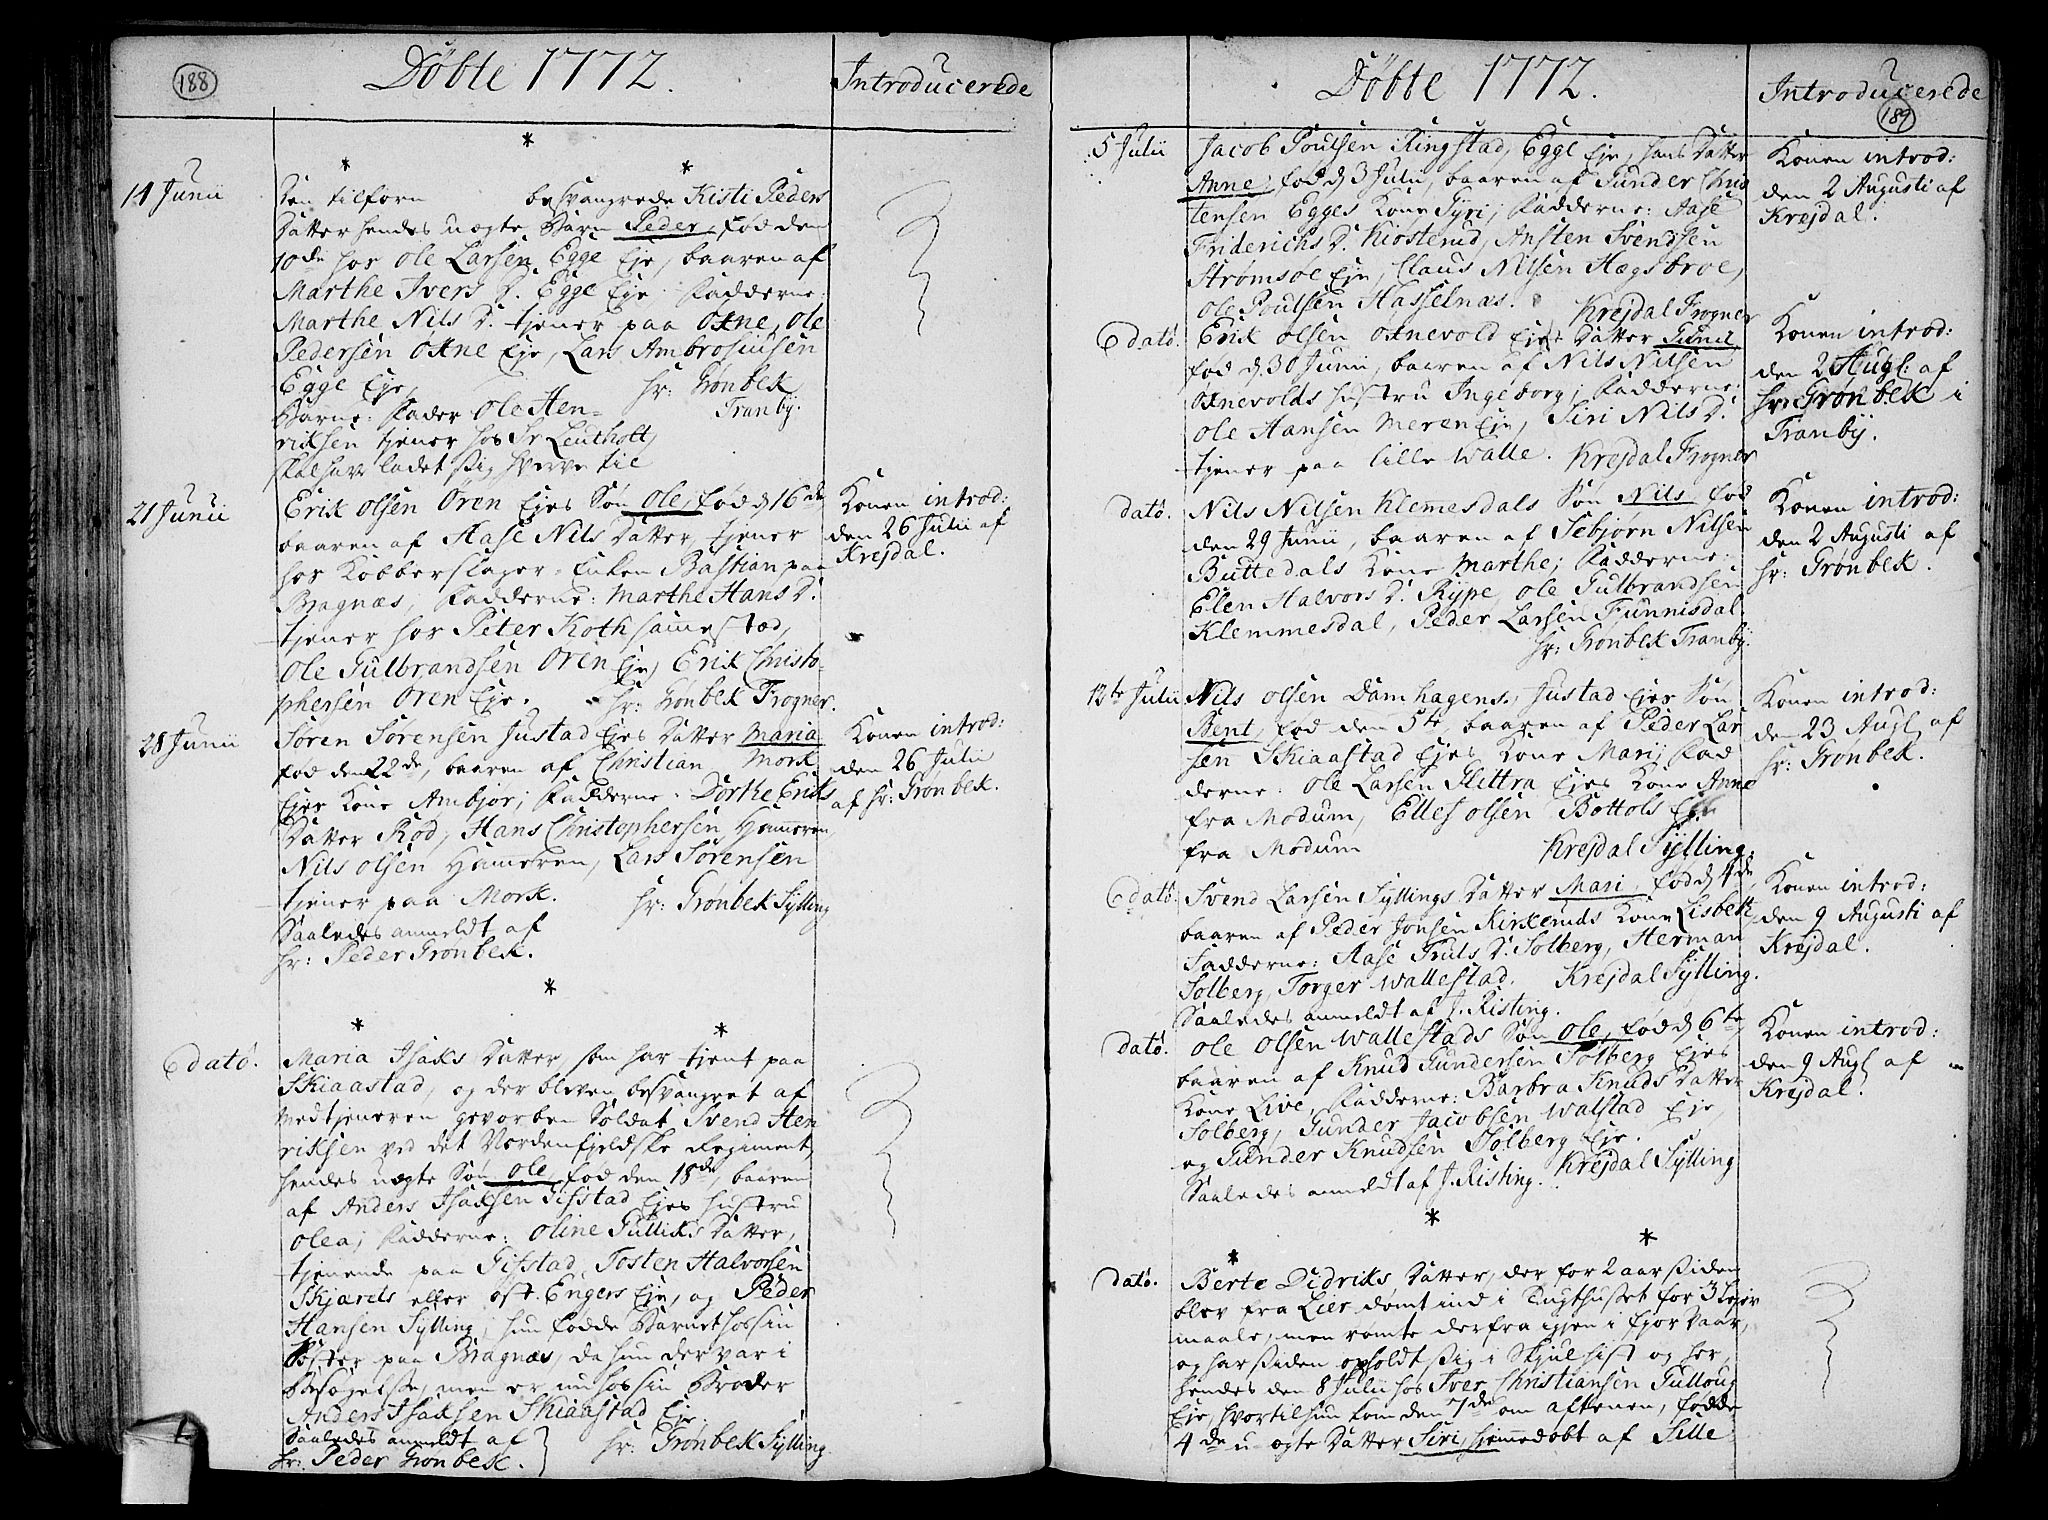 188
Döbte 1772.
Introducerede
14 Junii
Den tilforn besvangrede Kisti Peders
Datter hendes uægte Barn Peder, fød den
10de hos Ole Larsen Egge Eje, baaren af
Marthe Ivers D. Egge Eje. Fadderne:
Marthe Nils D. tjener paa Oxne, Ole
Pedersen Oxne Eje, Lars Ambrosiusen
Egge Eje,
hr: Grönbek
Tranby.
Barne-Fader Ole Hen-
riksen tjener hos Sr Leutholt,
skal have ladet sig hverve til
21 Junii
Erik Olsen Ören Ejes Sön Ole, fød d. 16de
baaren af Aase Nils Datter, tjener
hos Kobberslager-Enken Bastian paa
Bragnæs, Fadderne: Marthe Hans D.
tjener hos Peter Koth sammestæd,
Ole Gulbrandsen Ören Eje, Erik Christo-
phersen Ören Eje. hr: Grönbek Frogner.
Konen introd:
den 26 Julii af
Krejdal.
28 Junii
Sören Sörensen Justad Ejes Datter Maria
fød den 22de, baaren af Christian Mork
Ejes Kone Ambjor; Fadderne: Dorthe Eriks
Datter Röd, Hans Christophersen Hameren,
Nils Olsen Hameren, Lars Sörensen
tjener paa Mork. hr: Grönbek Sylling
Saaledes anmeldt af
hr: Peder Grönbek.
Konen introd:
den 26 Julii
af hr: Grönbek.
Edatö.
Maria Isaks Datter, som har tjent paa
Skiaastad, og der bleven besvangret af
Medtjeneren gevorben Soldat Svend Hen
riksen ved det Nordenfjeldske Regiment,
hendes uægte Sön Ole, fød den 18de, baaren
af Anders Isaksen Gifstad Ejes hustru
Olea; Fadderne: Oline Gulliks Datter,
tjenende paa Gifstad, Tosten Halvorsen
Skjards eller öst. Engers Eje, og Peder
Hansen Sylling; hun födde Barnet hos sin
Söster paa Bragnæs, da hun der var i
Besögelse, men er nu hos sin Broder
Anders Isaksen Skiaastad Eje.
Saaledes anmeldt af
hr: Peder Grönbek.
hr: Grönbek Sylling.
Döbte 1772.
Introducerede
189
5 Julii
Jacob Poulsen Ringstad, Egge Eje, hans Datter
Anne, fød d. 3 Julii, baaren af Gunder Chris
tensen Egges Kone Gyri; Fadderne: Aase
Friderichs D. Kiosterud, Ansten Svendsen
Strømsoe Eje, Claus Nilsen Hægsbroe,
Ole Poulsen Hasselnas. Krejdal Frogner
Konen introd:
den 2 Augusti af
Krejdal.
Edatö.
Erik Olsen Oxnevold Ejes Datter Gunil,
fød d. 30 Junii, baaren af Nils Nilsen
Oxnevolds hustru Ingeborg; Fadderne:
Ole Hansen Meren Eje, Siri Nils D.
tjener paa lille Walle. Krejdal Frogner
Konen introd:
den 2 Augl: af
hr: Grønbek i
Tranby.
datö.
Nils Nilsen Klemmesdals Sön Nils, fød
den 29 Junii, baaren af Sebjörn Nilsen
Buttedals Kone Marthe; Fadderne:
Elen Halvors D. Rype, Ole Gulbrandsen
Klemmesdal, Peder Larsen Funnisdal.
hr: Grönbek Tranby.
Konen introd:
den 2 Augusti af
hr: Grönbek.
12te Julii
Nils Olsen Damhagens, Justad Ejes Sön
Bent, fød den 5te, baaren af Peder Lar
sen Skiaastad Ejes Kone Mari; Fad
derne: Ole Larsen Slittra Ejes Kone Anne
fra Modum, Ellef Olsen Bottols Eje
fra Modum Krejdal Sylling.
Konen introd:
den 23 Augl af
hr: Grönbek.
Edatö.
Svend Larsen Syllings Datter Mari, fød d. 4de,
baaren af Peder Jonsen Kirkeruds Kone Lisbeth,
Fadderne: Aase Truls D. Solberg, Herman
Solberg, Torger Wallestad. Krejdal Sylling.
Saaledes anmeldt af J. Risting.
Konen introd:
den 9 Augusti af
Krejdal.
datö.
Ole Olsen Wallestads Sön Ole, fød d. 6te,
baaren af Knud Gundersen Solberg Ejes
Kone Live, Fadderne: Barbra Knuds Datter
Solberg, Gunder Jacobsen Walstad Eje,
og Gunder Knudsen Solberg Eje.
Saaledes anmeldt af J. Risting. Krejdal Sylling
Konen introd:
den 9 Augl af
Krejdal.
datö.
Berte Didriks Datter, der for 2 aar siden
blev fra Lier dömt ind i Tugthuset for 3 Leier
maale, men römte derfra igjen i fjor Vaar,
og har siden opholdt sig i Skjul hist og her,
hendes den 8 Julii hos Iver Christiansen Gulloug
Eje, hvortil hun kom den 7de om aftenen, födde
4de u-ægte Datter Siri, hjemmedöbt af Sille